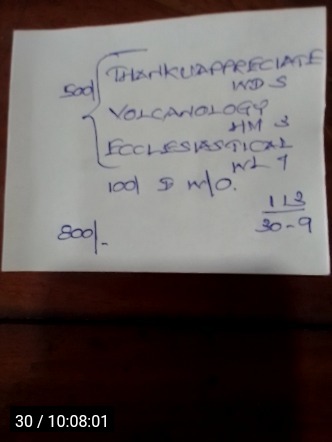 500/
THANKUAPPRECIATE
WD 5
VOLCANOLOGY
HM 3
ECCLESIASTICAL
WL 7
100/ D M/O.
113
30-9
800/-
30 / 10:08:01